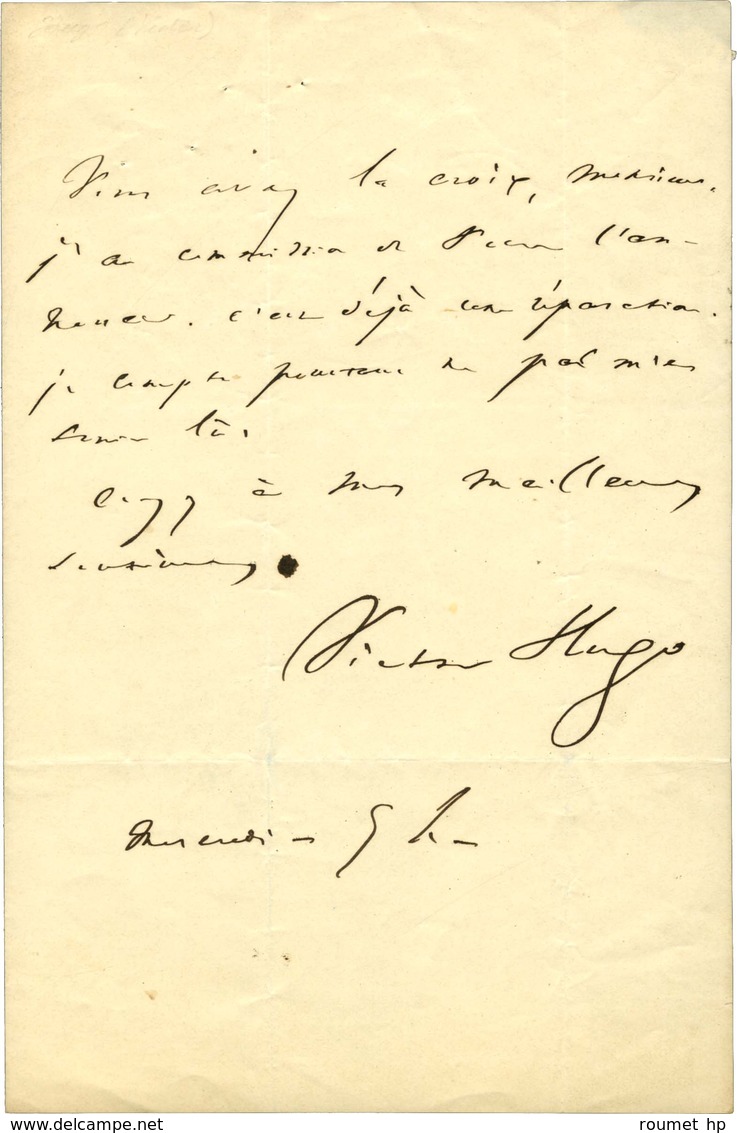 Vous avez la croix, monsieur.
j'ai commission de vous l'an-
noncer. c'est déjà une réparation.
je compte pourtant ne pas m'en
tenir là.
croyez à mes meilleurs
sentiments
Victor Hugo
mercredi – 5 h –
delcampe.net
roumet hp